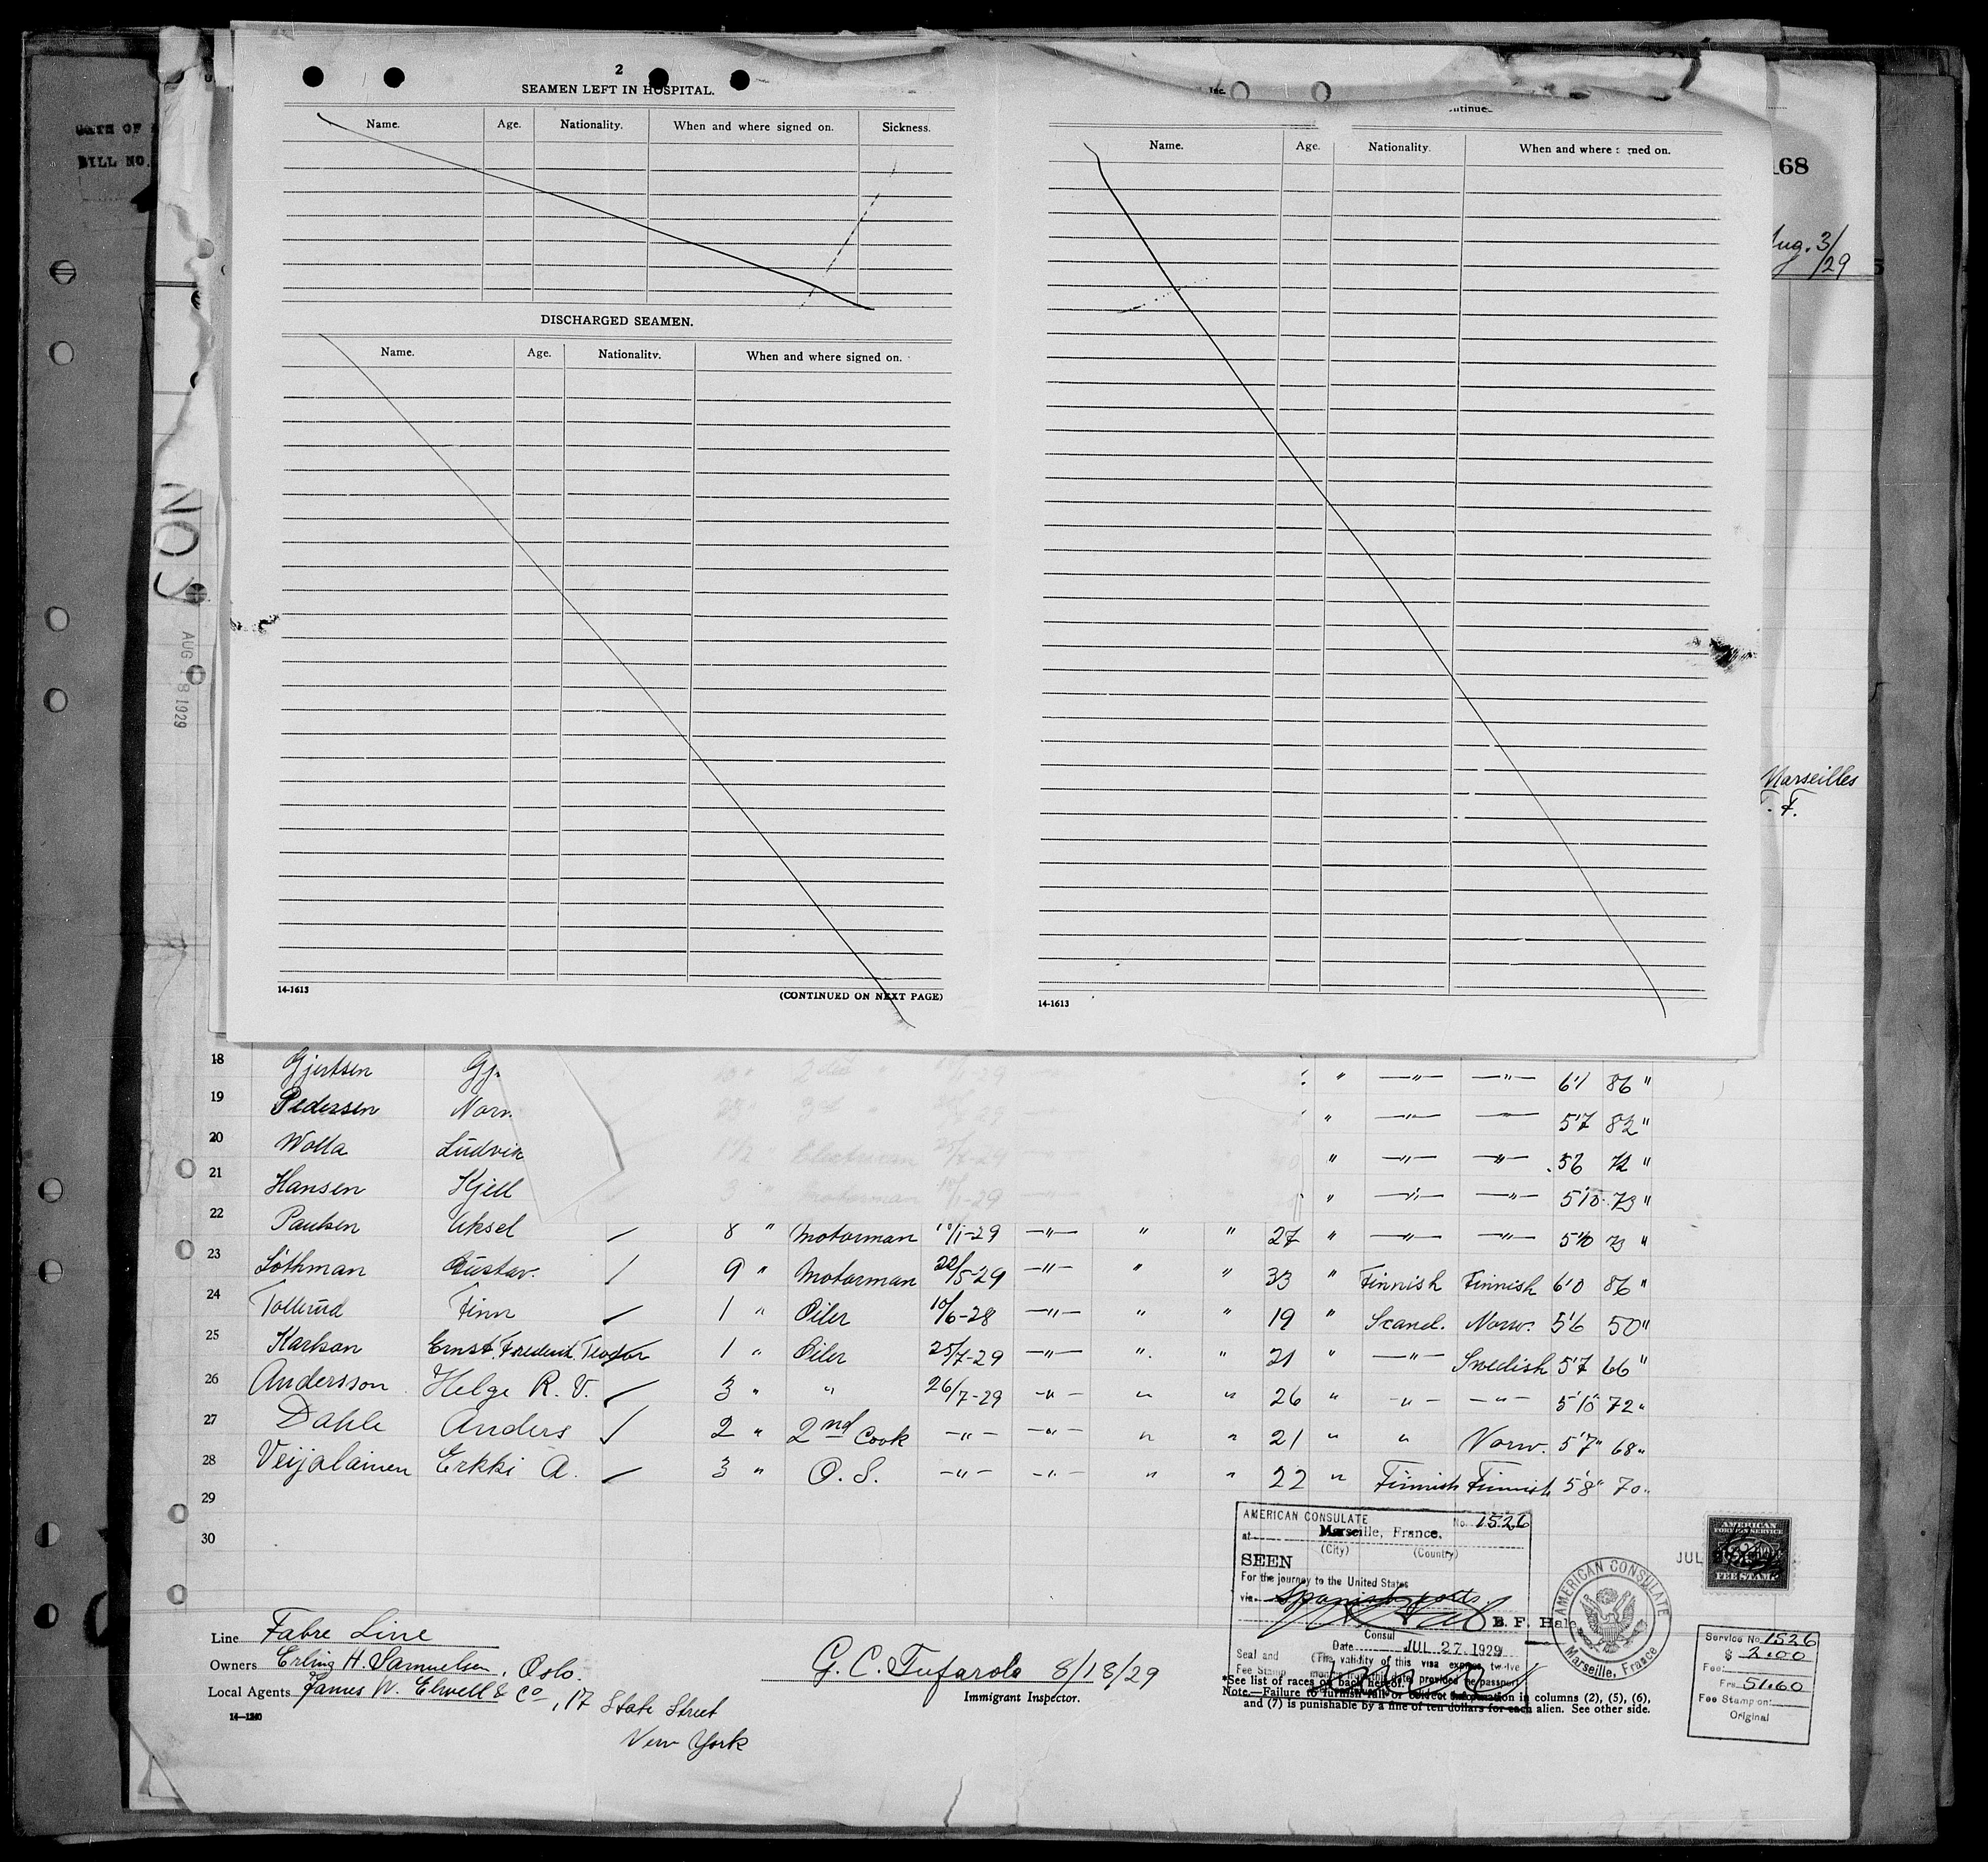 OATH OF
BILL NO.
2
SEAMEN LEFT IN HOSPITAL.
Name. Age. Nationality. When and where signed on. Sickness.
DISCHARGED SEAMEN.
Name. Age. Nationality. When and where signed on.
14-1613 (CONTINUED ON NEXT PAGE)
Inc.
Name. Age. Nationality. When and where signed on.
14-1613
168
Aug. 3/29
Marseilles
AUG 18 1929
18 Gjertsen " —"— —"— 6'1 86 "
19 Pedersen " —"— —"— 5'7 82 "
20 Wolla Ludvik " —"— —"— 72 "
21 Hansen Kjell " —"— —"— 5'10 73 "
22 Paulsen Aksel ✓ 8 " Motorman 10/1-29 —"— " " 27 " —"— —"— 5'10 73 "
23 Löthman Gustav. ✓ 9 " Motorman 22/5-29 —"— " " 33 " Finnish Finnish 6'0 86 "
24 Tollerud Finn ✓ 1 " Oiler 10/6-28 —"— " " 19 " Scand. Norw. 5'6 50 "
25 Karlson Ernst. Frederik. Teodor 1 " Oiler 25/7-29 —"— " " 21 " —"— Swedish 5'7 66 "
26 Andersson Helge R. V. ✓ 3 " " 26/7-29 —"— " " 26 " —"— —"— 5'10" 72 "
27 Dahle Anders ✓ 2 " 2nd Cook —"— —"— " " 21 " " Norw. 5'7" 68 "
28 Veijalainen Erkki A. ✓ 3 " O. S. —"— —"— " " 22 " Finnish Finnish 5'8" 70 "
29
30
AMERICAN CONSULATE No. 1526
at Marseille, France.
(City) (Country)
SEEN
For the journey to the United States
via Spanish ports
B. F. Hale
Consul
Date JUL 27 1929
Seal and Fee Stamp
(The validity of this visa expires twelve
months from this date provided the passport
AMERICAN CONSULATE
Marseille, France
JUL
AMERICAN
FOREIGN SERVICE
FEE STAMP
Service No. 1526
$ 2.00
Fee:
Frs. 51.60
Fee Stamp on:
Original
Line Fabre Line
Owners Erling H. Samuelsen, Oslo.
Local Agents James W. Elwell & Co, 17 State Street
New York
14—1240
G. C. Tufarolo 8/18/29
Immigrant Inspector.
*See list of races on back hereof.
Note.—Failure to furnish full or correct information in columns (2), (5), (6),
and (7) is punishable by a fine of ten dollars for each alien. See other side.